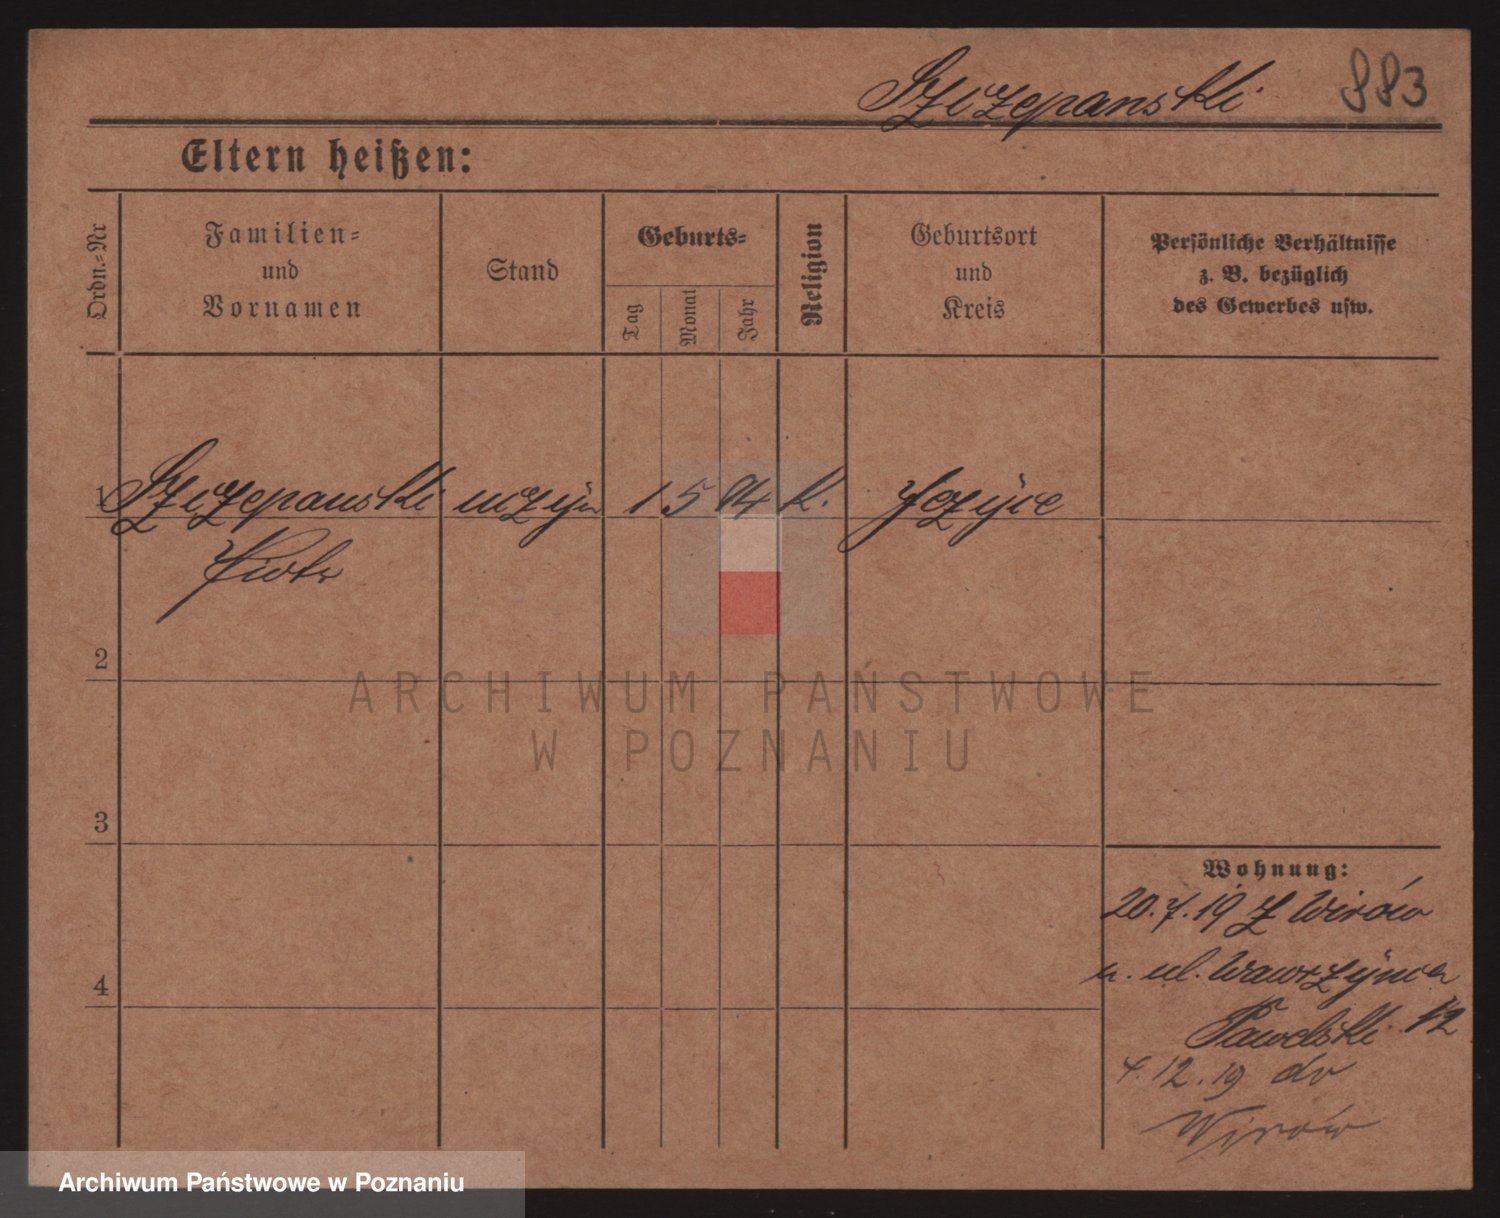 Szczepanski 883
Eltern heißen:
Ordn.-Nr
Familien-
und
Vornamen
Stand
Geburts-
Tag
Monat
Jahr
Religion
Geburtsort
und
Kreis
Persönliche Verhältnisse
z. B. bezüglich
des Gewerbes usw.
1 Szczepanski uczyń 1 5 04 k. Jeżyce
Piotr
2
3
4
Wohnung:
20.7.19 z Wirów
u. ul. Wawrzyńca
Pawelski 12
4.12.19 do
Wirów
ARCHIWUM PAŃSTWOWE
W POZNANIU
Archiwum Państwowe w Poznaniu